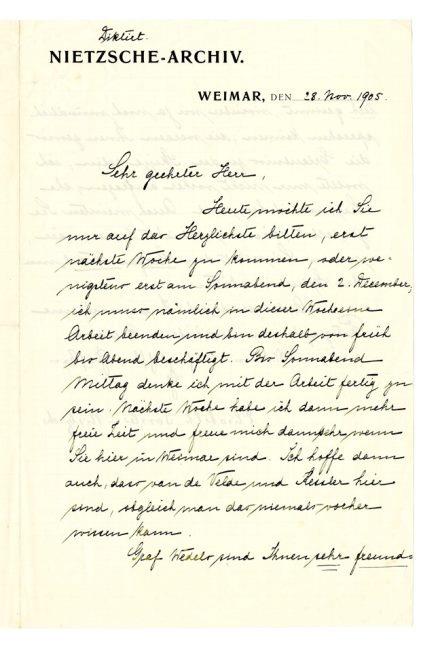 Diktirt.
NIETZSCHE-ARCHIV.
WEIMAR, DEN 28. Nov. 1905.
Sehr geehrter Herr,
Heute möchte ich Sie
nur auf das Herzlichste bitten, erst
nächste Woche zu kommen, oder we-
nigstens erst am Sonnabend, den 2. December,
ich muss nämlich in dieser Woche eine
Arbeit beenden und bin deshalb von früh
bis Abend beschäftigt. Bis Sonnabend
Mittag denke ich mit der Arbeit fertig zu
sein. Nächste Woche habe ich dann mehr
freie Zeit und freue mich dann sehr wenn
Sie hier in Weimar sind. Ich hoffe dann
auch, dass van de Velde und Kessler hier
sind, obgleich man das niemals vorher
wissen kann.
Graf Wedels sind Ihnen sehr freund-